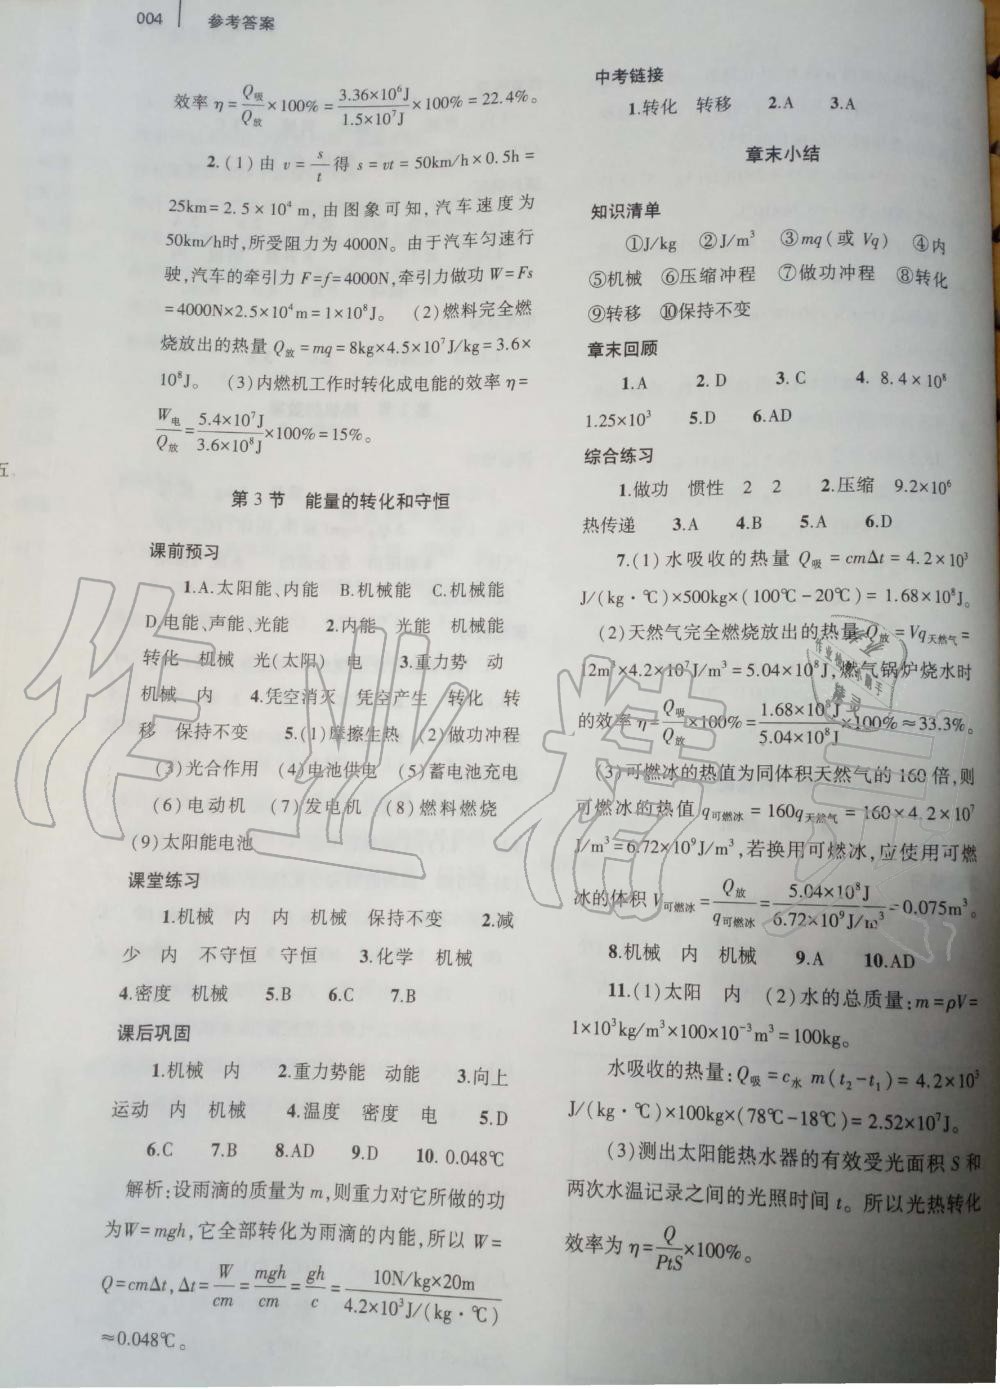 004 参考答案
效率 η = Q吸/Q放 ×100% = 3.36×10⁶J/1.5×10⁷J ×100% = 22.4%。
2.(1)由 v = s/t 得 s = vt = 50km/h×0.5h =
25km = 2.5×10⁴ m,由图象可知,汽车速度为
50km/h时,所受阻力为 4000N。由于汽车匀速行
驶,汽车的牵引力 F=f=4000N,牵引力做功 W=Fs
=4000N×2.5×10⁴m=1×10⁸J。 (2)燃料完全燃
烧放出的热量 Q放 = mq = 8kg×4.5×10⁷J/kg = 3.6×
10⁸J。 (3)内燃机工作时转化成电能的效率 η =
W电/Q放 = 5.4×10⁷J/3.6×10⁸J ×100% = 15%。
第 3 节 能量的转化和守恒
课前预习
1.A.太阳能、内能 B.机械能 C.机械能
D.电能、声能、光能 2.内能 光能 机械能
转化 机械 光(太阳) 电 3.重力势 动
机械 内 4.凭空消灭 凭空产生 转化 转
移 保持不变 5.(1)摩擦生热 (2)做功冲程
(3)光合作用 (4)电池供电 (5)蓄电池充电
(6)电动机 (7)发电机 (8)燃料燃烧
(9)太阳能电池
课堂练习
1.机械 内 内 机械 保持不变 2.减
少 内 不守恒 守恒 3.化学 机械
4.密度 机械 5.B 6.C 7.B
课后巩固
1.机械 内 2.重力势能 动能 3.向上
运动 内 机械 4.温度 密度 电 5.D
6.C 7.B 8.AD 9.D 10. 0.048℃
解析:设雨滴的质量为 m,则重力对它所做的功
为W=mgh,它全部转化为雨滴的内能,所以 W=
Q=cmΔt,Δt = W/cm = mgh/cm = gh/c = 10N/kg×20m/4.2×10³J/(kg·℃)
≈0.048℃。
中考链接
1.转化 转移 2.A 3.A
章末小结
知识清单
①J/kg ②J/m³ ③mq(或 Vq) ④内
⑤机械 ⑥压缩冲程 ⑦做功冲程 ⑧转化
⑨转移 ⑩保持不变
章末回顾
1.A 2. D 3. C 4. 8.4×10⁸
1.25×10³ 5.D 6.AD
综合练习
1.做功 惯性 2 2 2.压缩 9.2×10⁶
热传递 3.A 4.B 5.A 6.D
7.(1)水吸收的热量 Q吸 = cmΔt = 4.2×10³
J/(kg·℃)×500kg×(100℃-20℃) = 1.68×10⁸J。
(2)天然气完全燃烧放出的热量 Q放 = Vq天然气 =
12m³×4.2×10⁷J/m³ = 5.04×10⁸J,燃气锅炉烧水时
的效率 η = Q吸/Q放 ×100% = 1.68×10⁸J/5.04×10⁸J ×100%≈33.3%。
(3)可燃冰的热值为同体积天然气的 160 倍,则
可燃冰的热值 q可燃冰 = 160q天然气 = 160×4.2×10⁷
J/m³=6.72×10⁹J/m³,若换用可燃冰,应使用可燃
冰的体积 V可燃冰 = Q放/q可燃冰 = 5.04×10⁸J/6.72×10⁹J/m³ = 0.075m³。
8.机械 内 机械 9.A 10.AD
11.(1)太阳 内 (2)水的总质量:m=ρV=
1×10³kg/m³×100×10⁻³m³=100kg。
水吸收的热量:Q吸 = c水 m(t₂-t₁) = 4.2×10³
J/(kg·℃)×100kg×(78℃-18℃) = 2.52×10⁷J。
(3)测出太阳能热水器的有效受光面积 S 和
两次水温记录之间的光照时间 t。所以光热转化
效率为 η = Q/PtS ×100%。
五
作业精灵